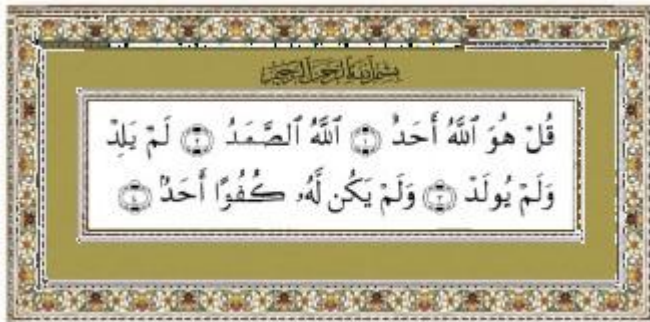 بسم الله الرحمن الرحيم
قُلْ هُوَ ٱللَّهُ أَحَدٌ ١ ٱللَّهُ ٱلصَّمَدُ ٢ لَمْ يَلِدْ
وَلَمْ يُولَدْ ٣ وَلَمْ يَكُن لَّهُۥ كُفُوًا أَحَدٌۢ ٤